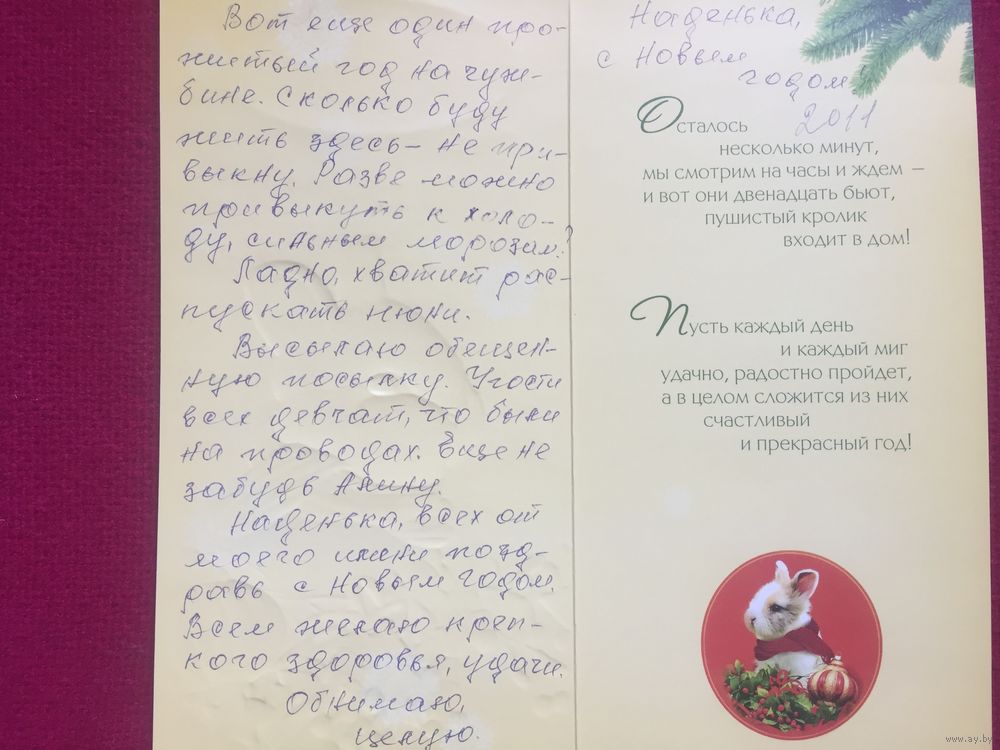 Вот еще один про-
житый год на чуж-
бине. Сколько буду
жить здесь – не при-
выкну. Разве можно
привыкнуть к холо-
ду, сильным морозам?
Ладно, хватит рас-
пускать нюни.
Высылаю обещен-
ную посылку. Угости
всех девчат, что были
на проводах. Еще не
забудь Алину.
Наденька, всех от
моего имени позд-
равь с Новым годом.
Всем желаю креп-
кого здоровья, удачи.
Обнимаю,
целую.
Наденька,
с Новым
годом!
2011
Осталось
несколько минут,
мы смотрим на часы и ждем –
и вот они двенадцать бьют,
пушистый кролик
входит в дом!
Пусть каждый день
и каждый миг
удачно, радостно пройдет,
а в целом сложится из них
счастливый
и прекрасный год!
www.ay.by